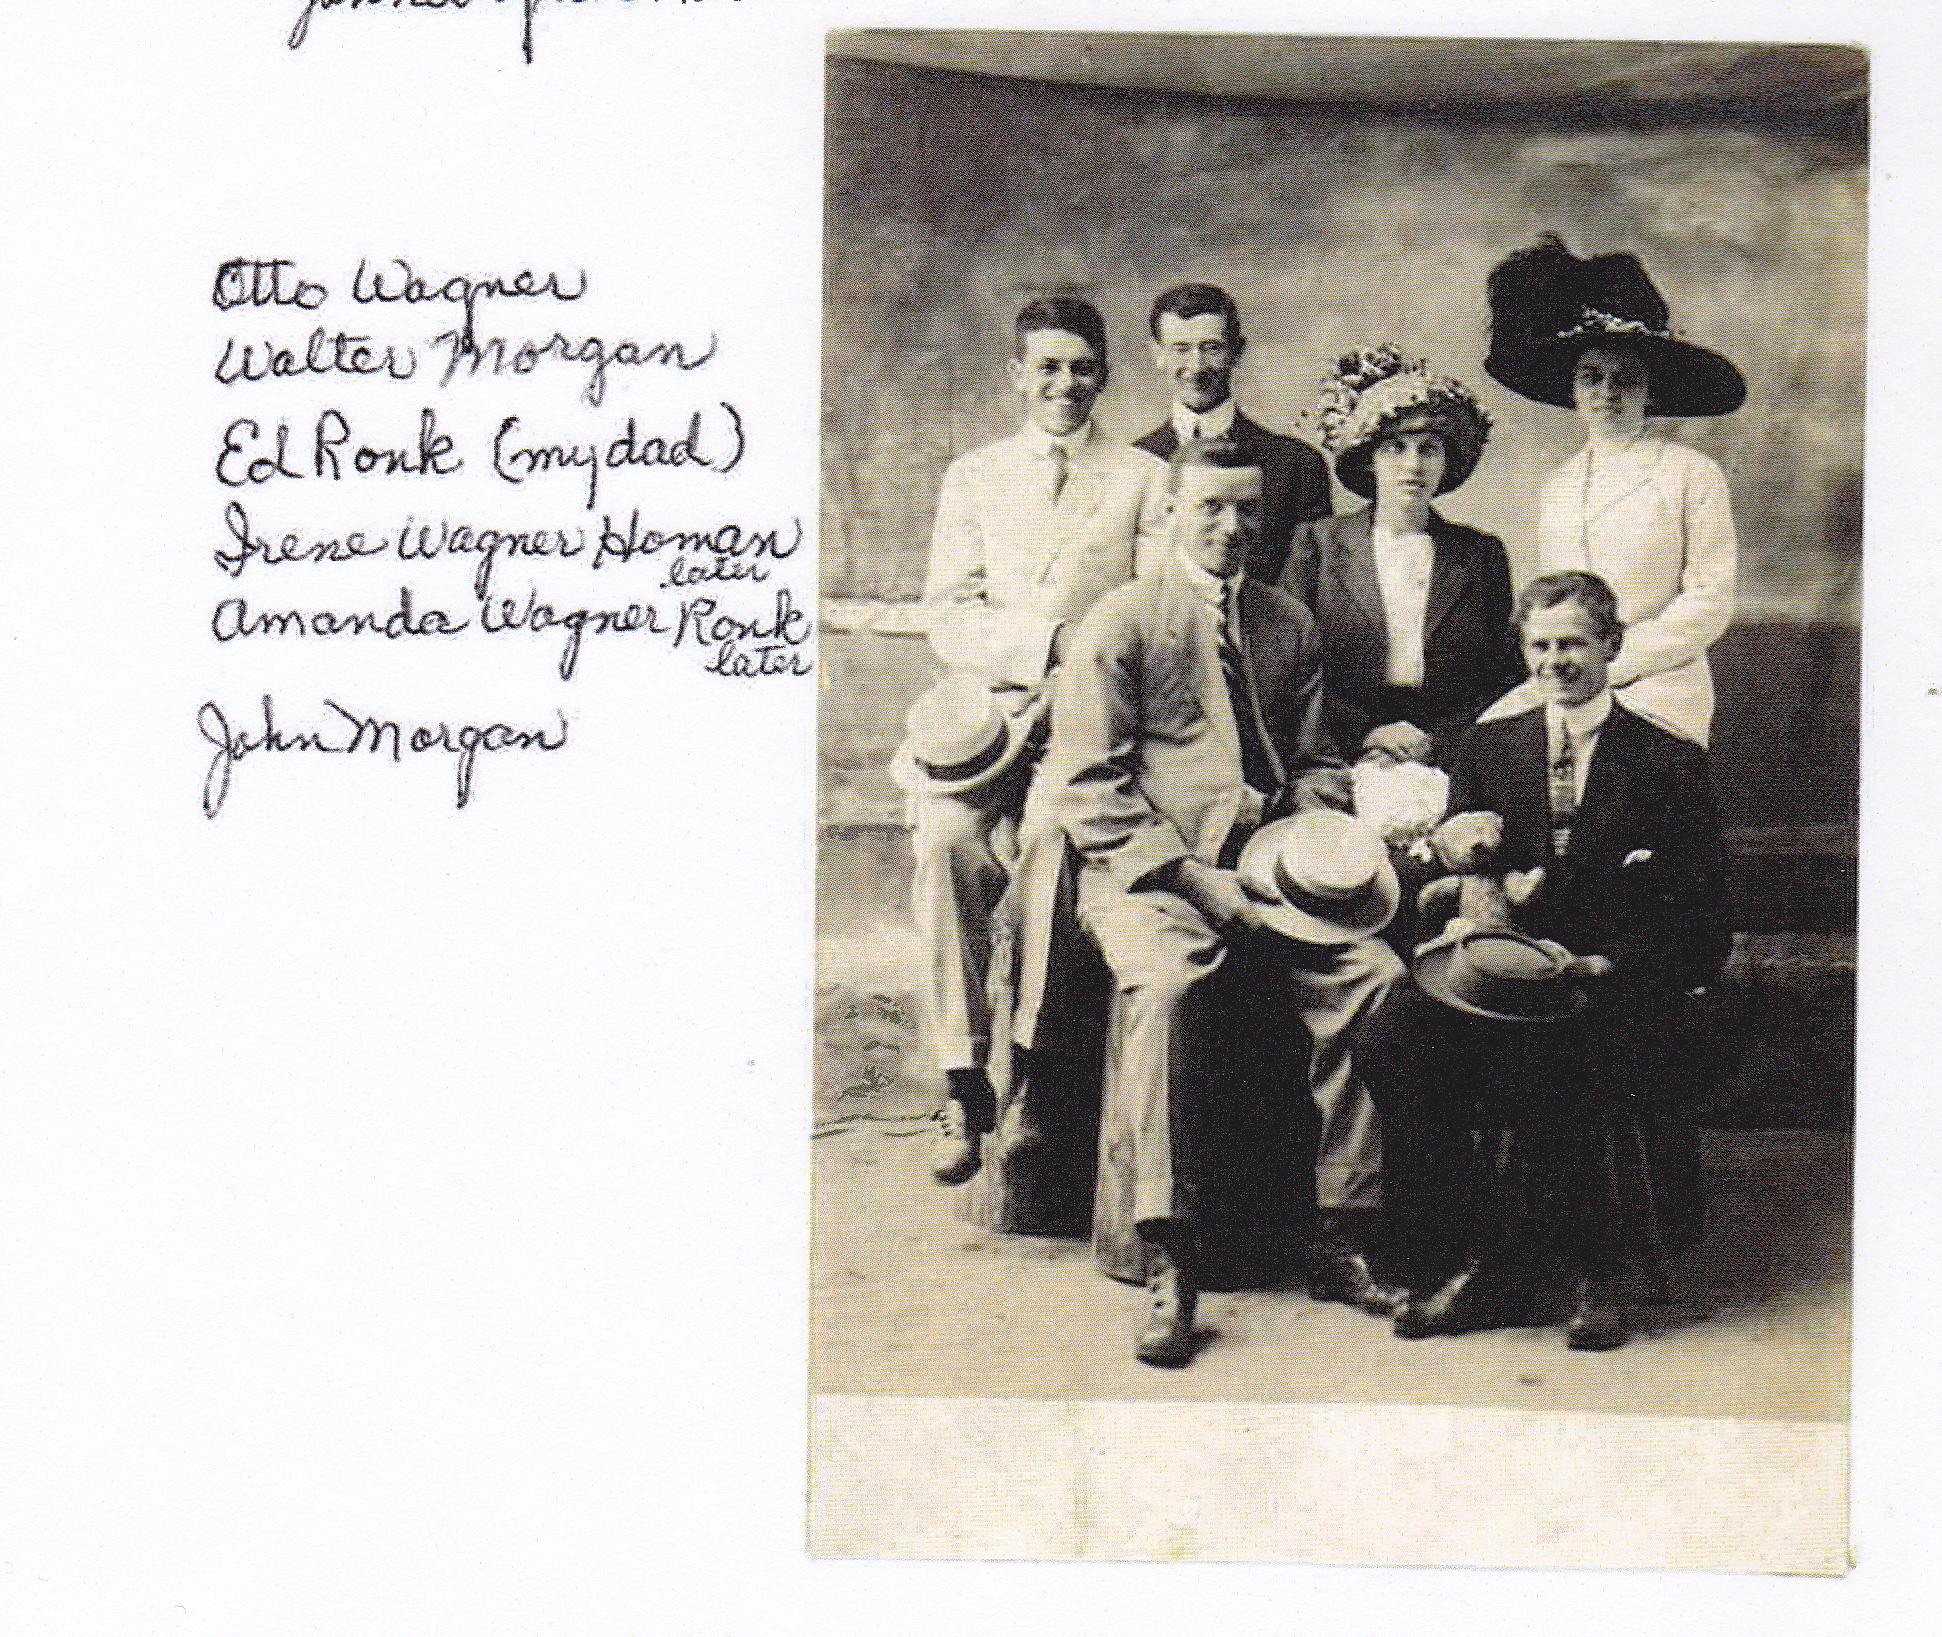 Otto Wagner
Walter Morgan
Ed Ronk (my dad)
Irene Wagner Homan
later
Amanda Wagner Ronk
later
John Morgan